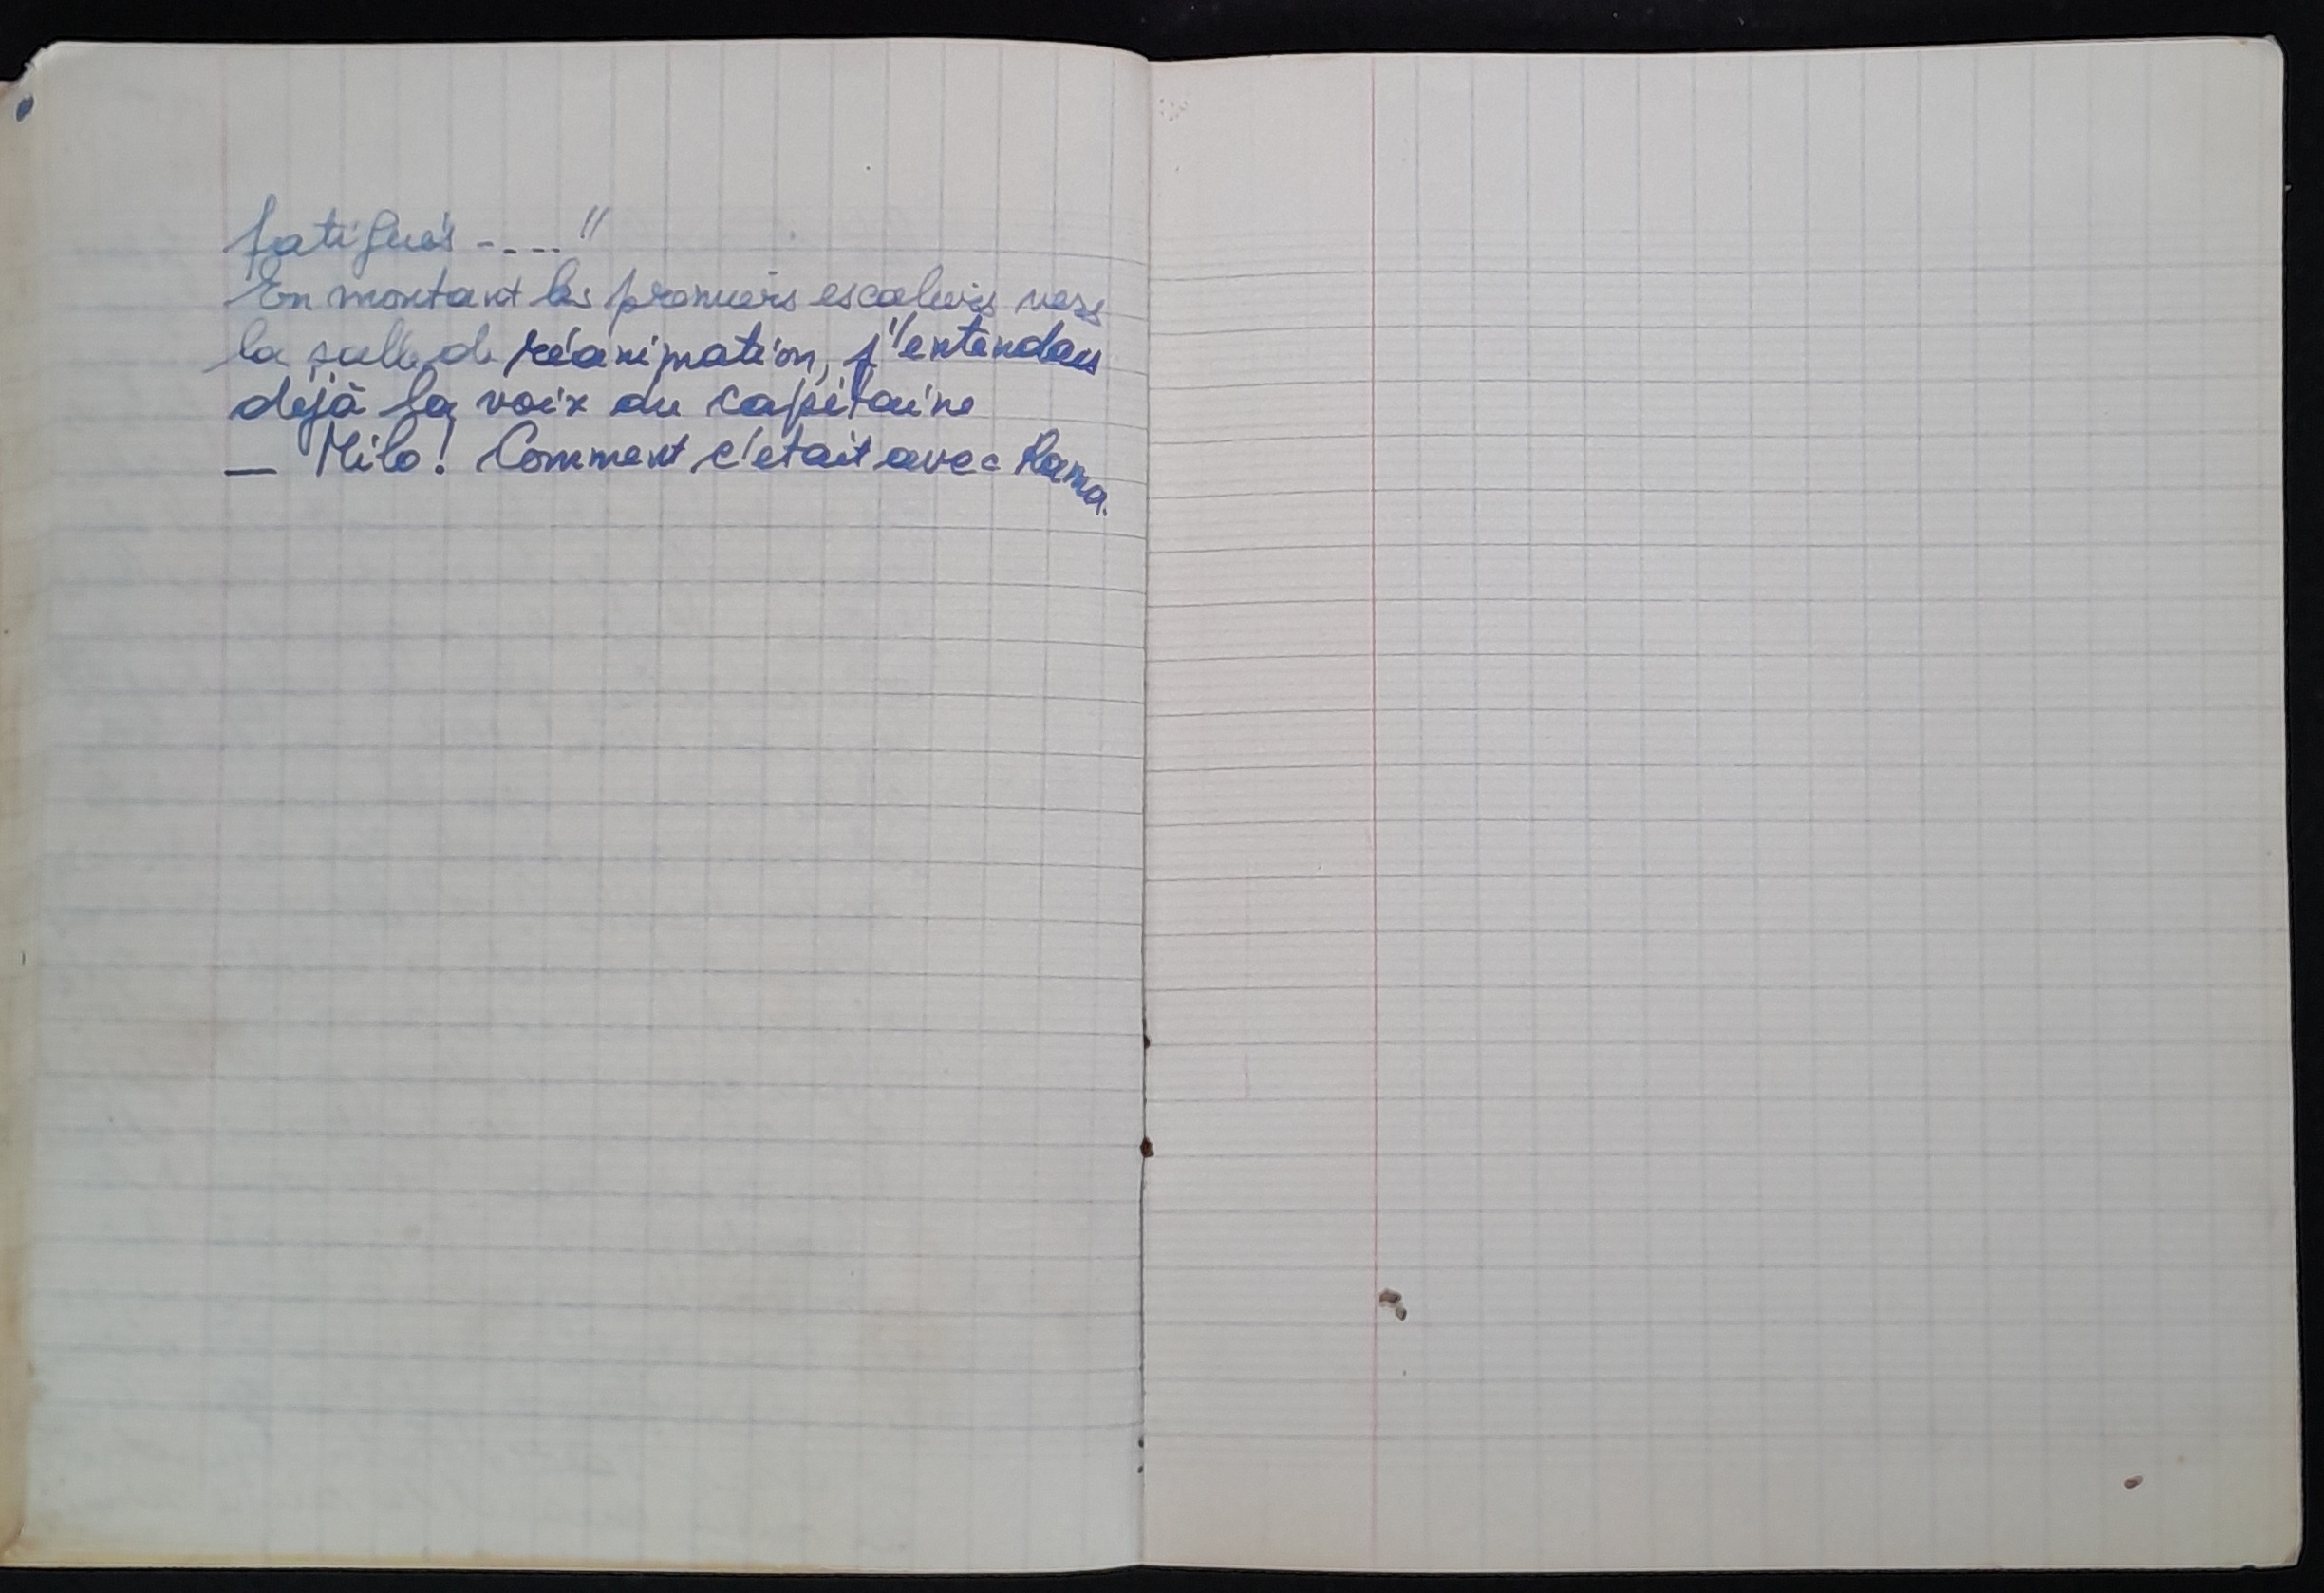 fatigués ----"
En montant les premiers escaliers vers
la salle de réanimation, j'entendais
déjà la voix du capitaine
— Milo! Comment c'était avec Rama.